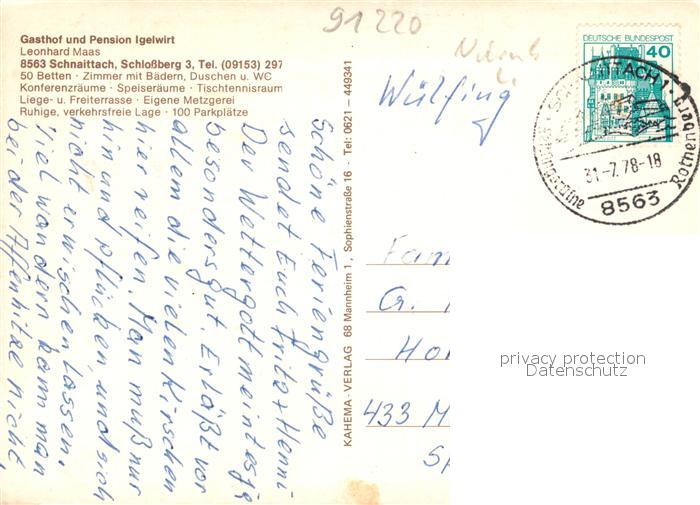 91220
Gasthof und Pension Igelwirt
Leonhard Maas
8563 Schnaittach, Schloßberg 3, Tel. (09153) 297
50 Betten · Zimmer mit Bädern, Duschen u. WC
Konferenzräume · Speiseräume · Tischtennisraum
Liege- u. Freiterrasse · Eigene Metzgerei
Ruhige, verkehrsfreie Lage · 100 Parkplätze
Schöne Feriengrüße
sendet Euch Fritz + Henni
Der Wettergott meint es ja
besonders gut. Er läßt vor
allem die vielen Kirschen
hier reifen. Man muß nur
hin und pflücken, und sich
nicht erwischen lassen.
Viel wandern kann man
bei der Affenhitze nicht.
KAHEMA-VERLAG 68 Mannheim 1, Sophienstraße 16 · Tel. 0621 - 449341
Wülfing
DEUTSCHE BUNDESPOST
40
SCHNAITTACH 1
31-7.78-18
8563
Rothenberg
Fam
G.
Ho
433 M
Sp
privacy protection
Datenschutz